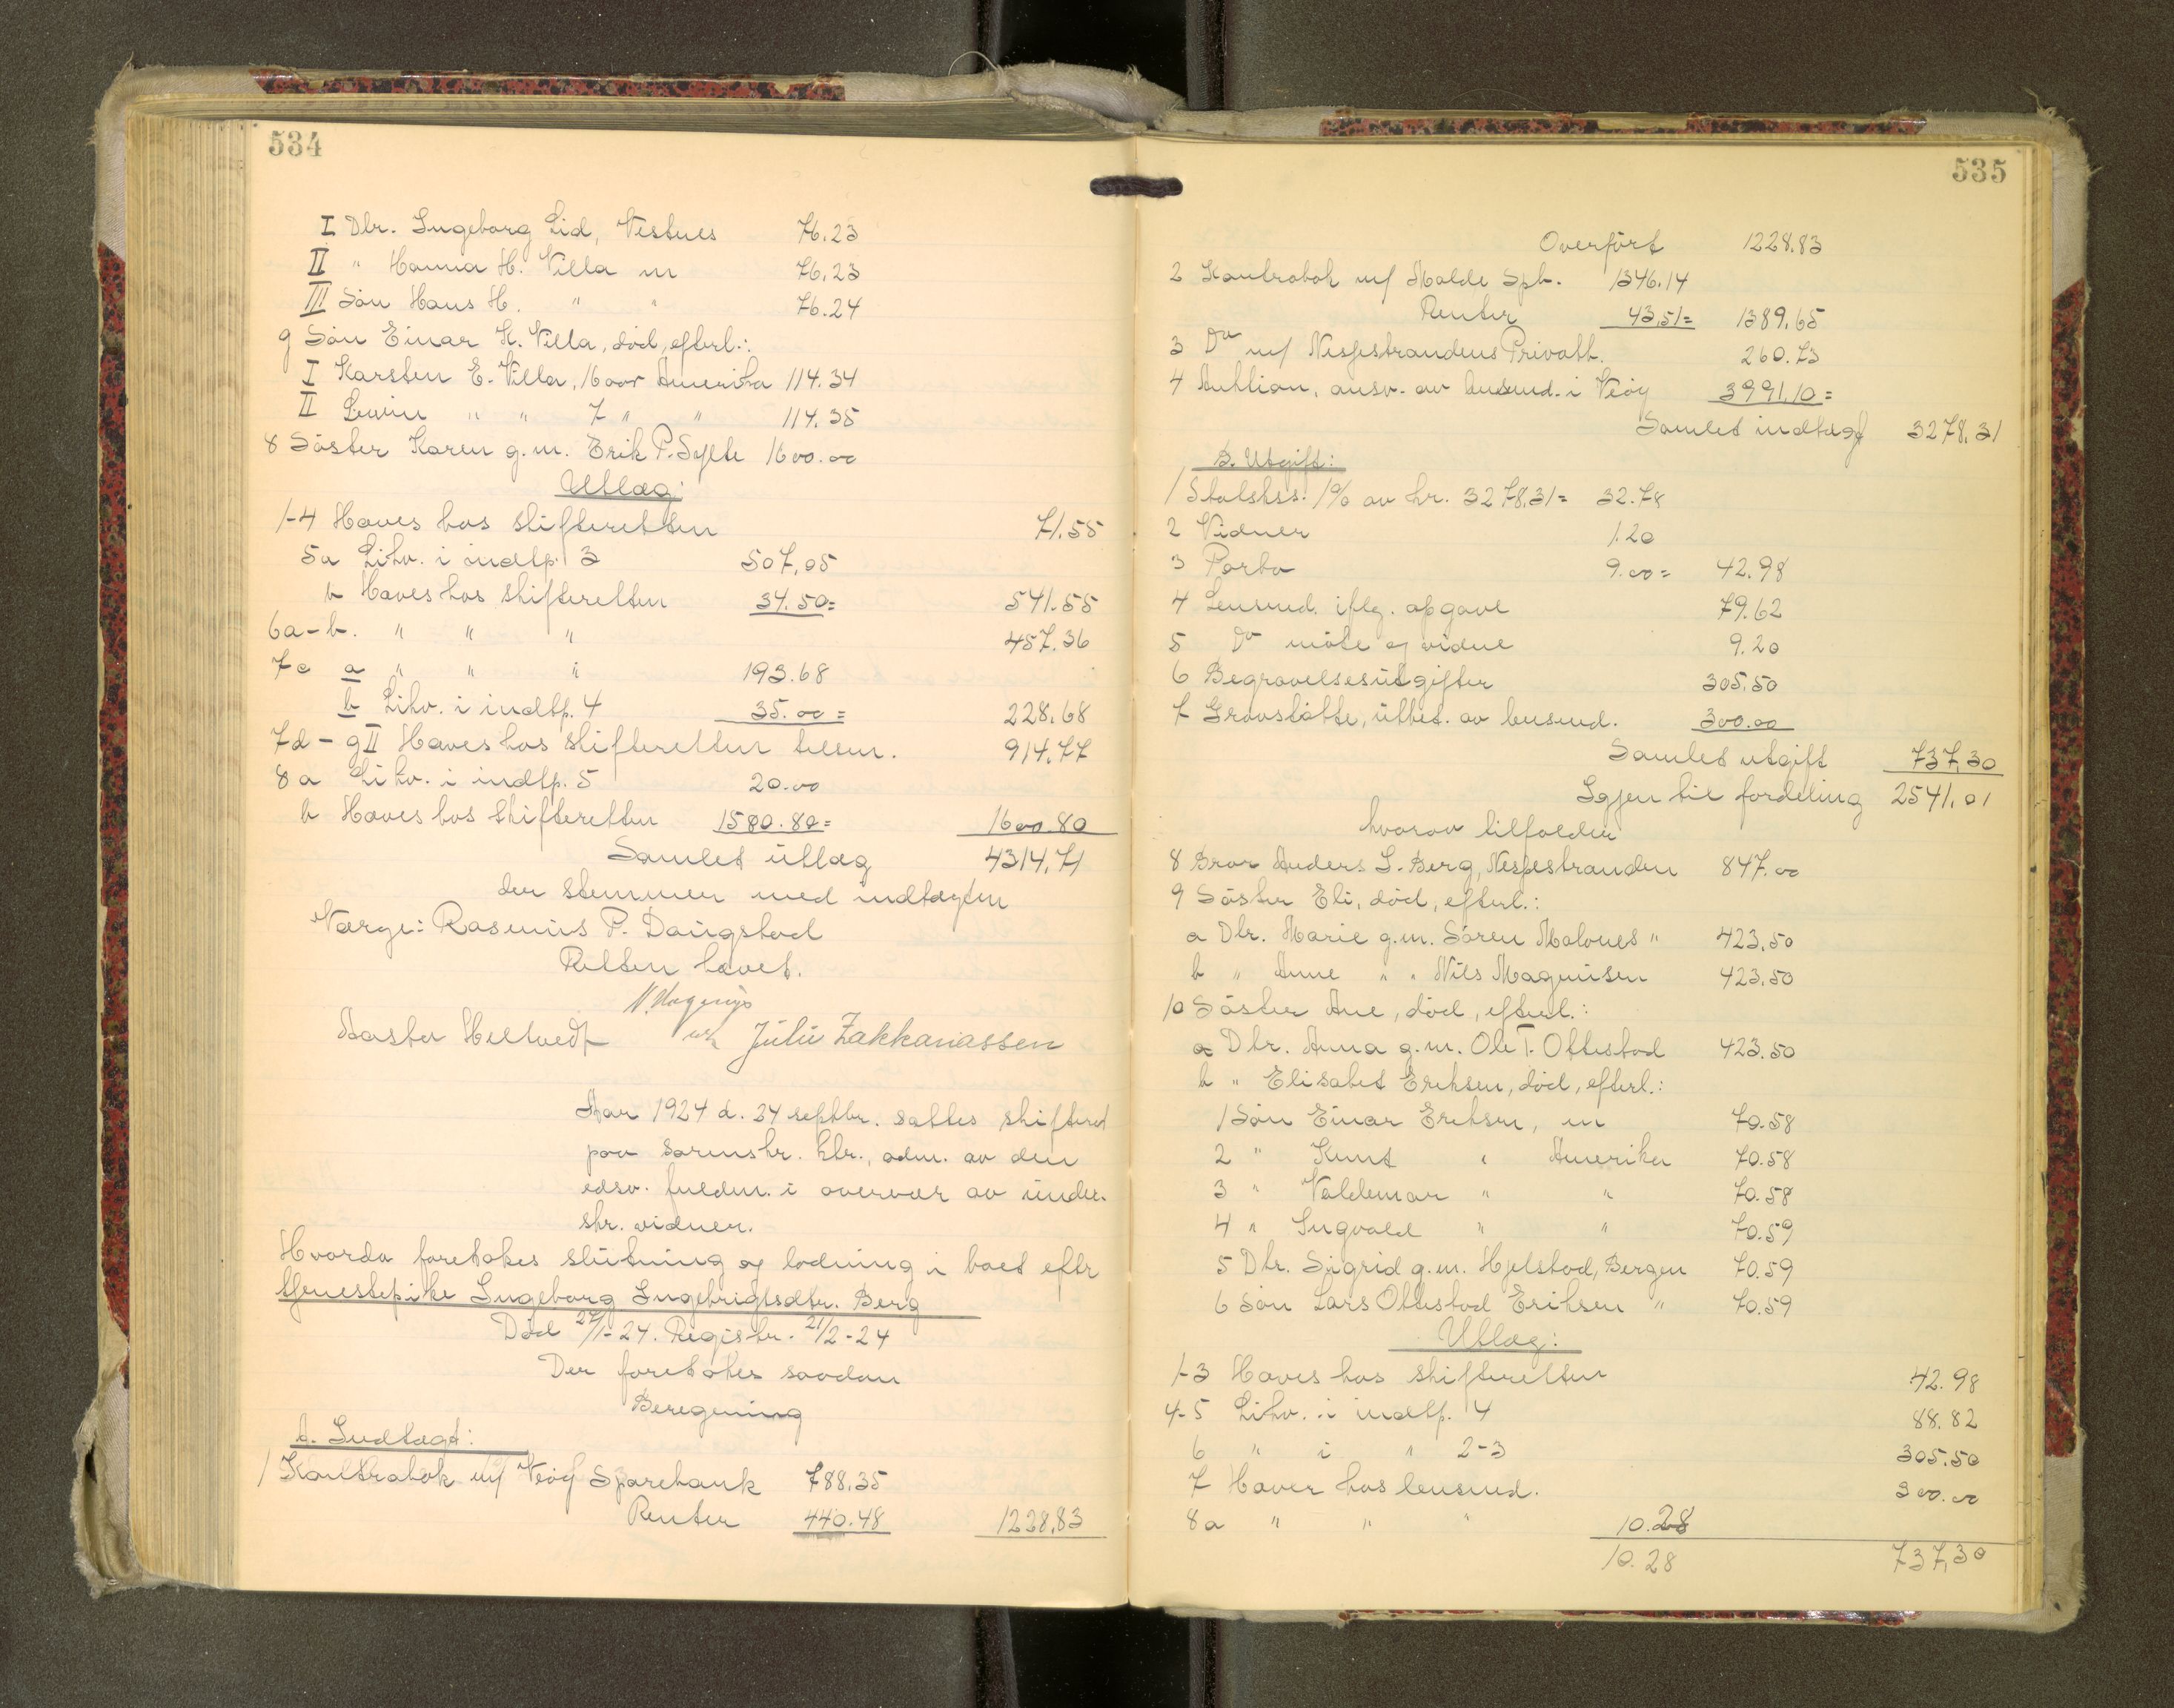 534
I Dtr. Ingeborg Lid, Vestnes 76.23
II " Hanna H. Villa m 76.23
III Søn Hans H. " " 76.24
g Søn Einar H. Villa, død, efterl.:
I Karsten E. Villa, 16 aar Amerika 114.34
II Lewin " " 7 " " 114.35
8 Søster Karen g.m. Erik P. Sylte 1600.00
Utlæg:
1-4 Haves hos skifteretten 71.55
5a Likv. i indtp. 3 507,05
b Haves hos skifteretten 34.50= 541.55
6a-b. " " " 457.36
7c a " " " 193.68
b Likv. i indtp. 4 35.00= 228.68
7d - gII Haves hos skifteretten tilsm. 914.77
8 a Likv. i indtp. 5 20.00
b Haves hos skifteretten 1580.80= 1600.80
Samlet utlæg 4314,71
der stemmer med indtægten
Værge: Rasmus P. Daugstad
Retten hævet.
Aasta Heltvedt Julie Zakkariassen
Aar 1924 d. 24 septbr. sattes skifteret
paa sorenskr. ktr., adm. av den
edsv. fuldm. i overvær av under-
skr. vidner.
Hvorda foretokes slutning og lodning i boet eftr
tjenestepike Ingeborg Ingebrigtsdtr. Berg
Død 27/1-24. Registr. 21/2-24
Der foretokes saadan
Beregening
A. Indtægt:
1 Kontrabok m/ Veøy Sparebank 788.35
Renter 440.48 1228,83
535
Overført 1228.83
2 Kontrabok m/ Molde Spb. 1346.14
Renter 43.51= 1389,65
3 Do m/ Nesjestrandens Privatb. 260.73
4 Auktion, ansv. av lensmd. i Veøy 399,10=
Samlet indtægt 3278,31
B. Utgift:
1 Statskss. 1% av kr. 3278,31= 32.78
2 Vidner 1.20
3 Porto 9.00= 42.98
4 Lensmd. iflg. opgave 79.62
5 Do møte og vidne 9.20
6 Begravelsesutgifter 305.50
7 Gravstøtte, utbet. av lensmd. 300.00
Samlet utgift 737,30
Igjen til fordeling 2541,01
hvorav tilfalder
8 Bror Anders I. Berg, Nesjestranden 847.00
9 Søster Eli, død, efterl.:
a Dtr. Marie g.m. Søren Malones " 423.50
b " Anne " " Nils Magnusen 423.50
10 Søster Ane, død, efterl.:
a Dtr. Anna g.m. Ole T. Ottestad 423.50
b " Elisabet Eriksen, død, efterl.:
1 Søn Einar Eriksen, m 70.58
2 " Knut " Amerika 70.58
3 " Valdemar " " 70.58
4 " Ingvald " " 70.59
5 Dtr. Sigrid g.m. Hjelstad, Bergen 70.59
6 Søn Lars Ottestad Eriksen " 70.59
Utlæg:
1-3 Haves hos skifteretten 42.98
4-5 Likv. i indtp. 4 88.82
6 " i " 2-3 305.50
7 Haver hos lensmd. 300.00
8a " " " 10.28
10.28 737,30